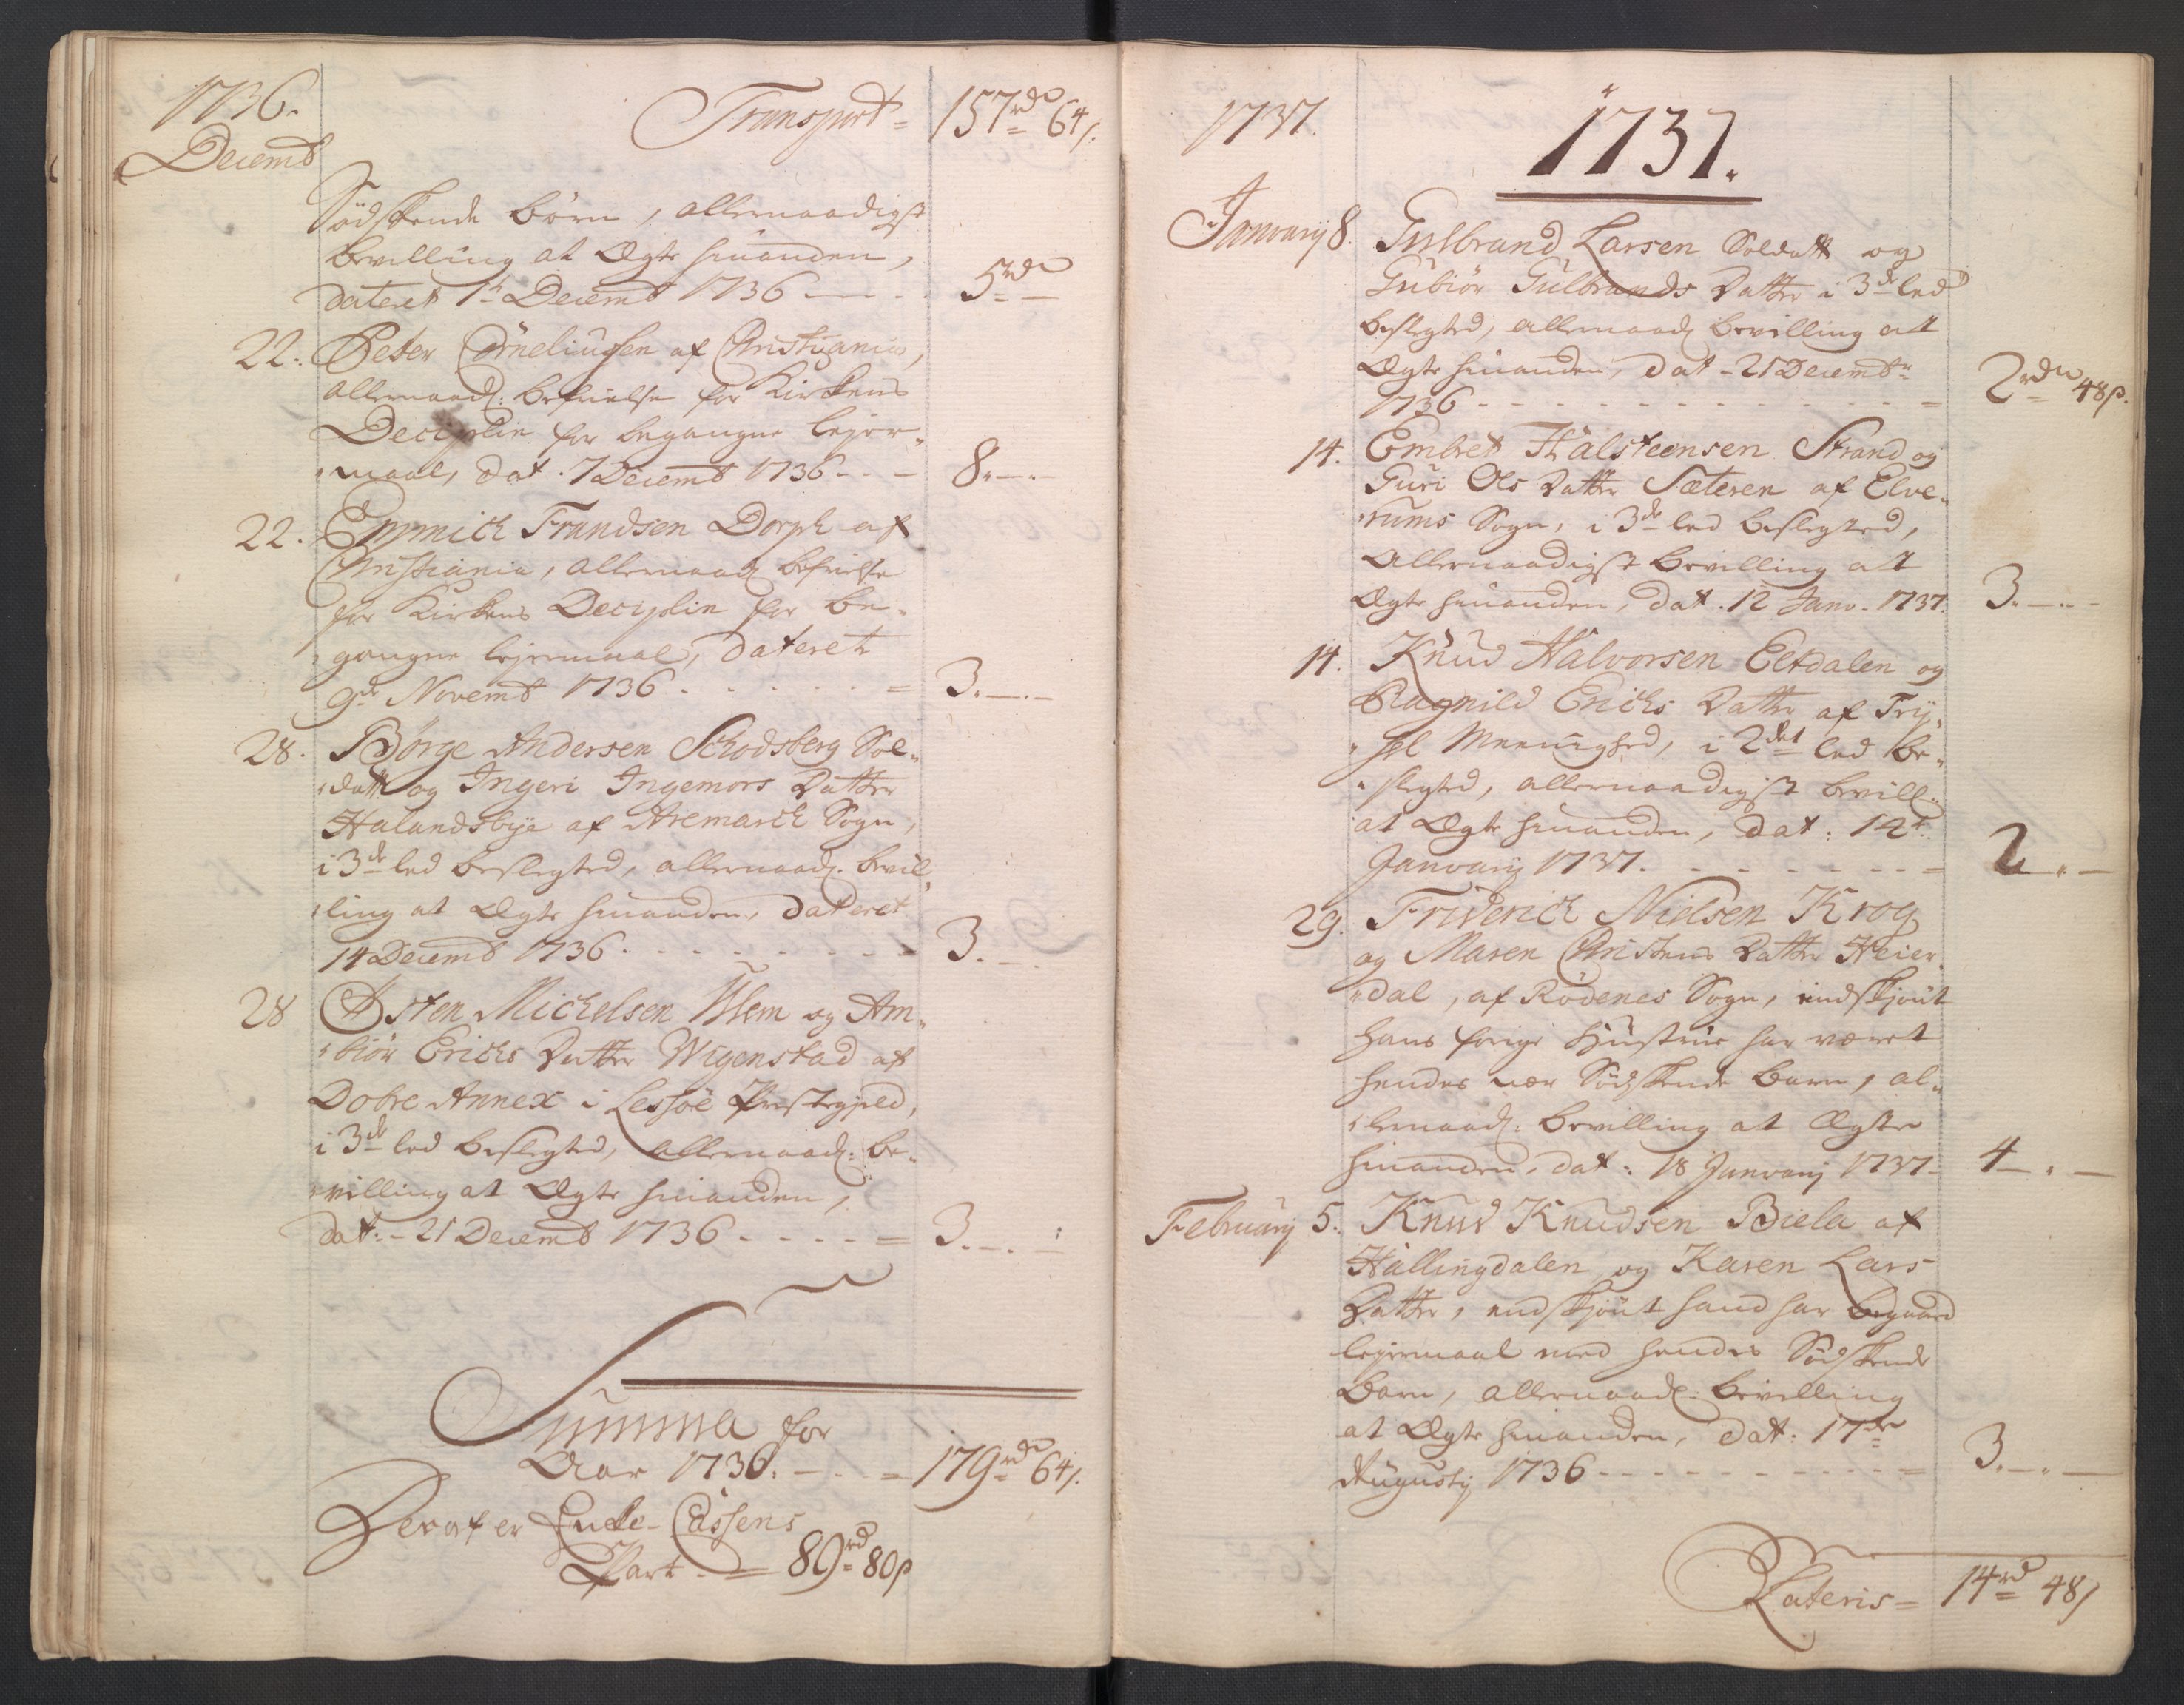 1736.
Decemb
Transport = 157 rdr 64 s.
Södskende börn, allernaadigst
bevilling at Ægte hinanden,
dateret 1te Decemb 1736 — 5 rdr —
22. Peter Corneliusen af Christiania,
allernaad: befrielse for Kirkens
Deciplin for begangne lejer„
„maal, dat. 7 Decemb 1736 - - - 8. —
22. Emmich Frandsen Dorph af
Christiania, allernaad: befrielse
for Kirkens Deciplin for be„
„gangne lejermaal, dateret
9de Novemb 1736 . . . . . = 3. —
28. Börge Andersen Schodsberg Sol„
„datt og Ingeri Ingemors Datter
Halandsbye af Aremarch Sogn,
i 3de led beslegted, allernaad. bevil„
„ling at Ægte hinanden, dateret
14 Decemb 1736 . . . . . . . 3. —
28 Östen Michelsen og Am„
„biör Erichs Datter Wigenstad af
Dobre Annex i Lessöe Prestegield,
i 3de led beslegted, allernaad: be„
„villing at Ægte hinanden,
dat: 21 Decemb 1736 . . . . = 3. —
Summa for
Aar 1736. - - - = 179 rdr 64 s.
Deraf er Qvæst-Cassens
Part - = 89 rd 80 s
1737.
1737.
Januarij 8. Gulbrand Larsen Soldatt og
Gubiör Gulbrands Datter i 3de led
beslegted, allernaad: bevilling at
Ægte hinanden, dat - 21 Decembr
1736 - - - - - - - - = 2 rdr 48 s.
14. Embret Halsteensen Strand og
Guri Ols Datter Sæteren af Elve„
„rums Sogn, i 3de led beslegted,
Allernaadigst bevilling at
Ægte hinanden, dat. 12 Janv. 1737. 3. —
14. Knud Halvorsen Eltdalen og
Ragnild Erichs Datter af Trij„
„sel Meenighed, i 2det led be„
„slegted, allernaadigst bevill:
at Ægte hinanden, dat: 12t.
Januarij 1737. - - - - - - = 2. —
29. Friderich Nielsen Krog
og Maren Christens Datter Heier„
„dal, af Rödenes Sogn, endskjönt
hans forige Hustrue har været
hendes nær Södskende barn, al„
„lernaad: bevilling at Ægte
hinanden, dat: 18 Januarij 1737 - 4. —
Februarij 5. Knud Knudsen Biela af
Hallingdalen og Karen Lars
Datter, endskjönt hand har begaaed
lejermaal med hendes Södskende
barn, allernaad: bevilling
at Ægte hinanden, dat: 17de
Augustij 1736 - - - - - - - = 3. —
Lateris = 14 rd 48 s